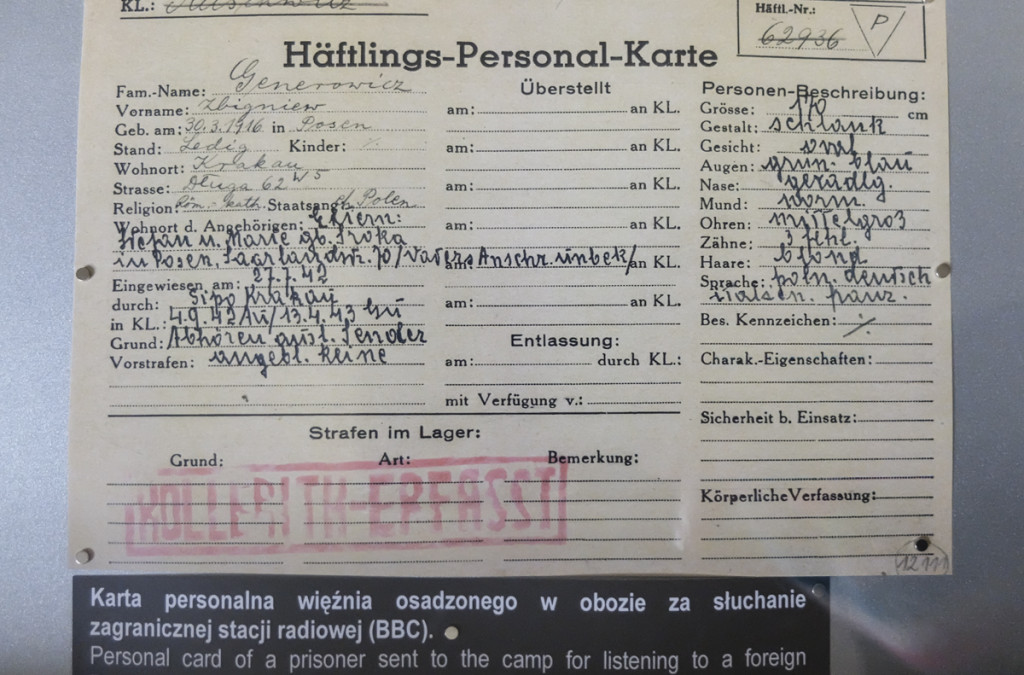 KL.: Auschwitz
Häftl.-Nr.:
62936
P
Häftlings-Personal-Karte
Fam.-Name: Generowicz
Vorname: Zbigniew
Geb. am: 30.3.1916 in Posen
Stand: Ledig Kinder: %
Wohnort: Krakau
Strasse: Długa 62 W 5
Religion: Röm.-kath. Staatsang. Polen
Wohnort d. Angehörigen: Eltern:
Stefan u. Marie gb.
in Posen, Saarlandstr. 70/Vaters Anschr. unbek/
Eingewiesen am: 27.7.42
durch: Sipo Krakau
in KL.: 4.9.42 Au/13.4.43 Bu
Grund: Abhören ausl. Sender
Vorstrafen: angebl. keine
Überstellt
am: an KL.
am: an KL.
am: an KL.
am: an KL.
am: an KL.
am: an KL.
Entlassung:
am: durch KL.:
mit Verfügung v.:
Personen-Beschreibung:
Grösse: 170 cm
Gestalt: schlank
Gesicht: oval
Augen: grün-blau
Nase: geradlg.
Mund: norm.
Ohren: mittelgroß
Zähne: 3 fehl.
Haare: blond
Sprache: poln. deutsch
italien. franz.
Bes. Kennzeichen: %
Charak.-Eigenschaften:
Sicherheit b. Einsatz:
Körperliche Verfassung:
Strafen im Lager:
Grund: Art: Bemerkung:
HOLLERITH-ERFASST
12 111
Karta personalna więźnia osadzonego w obozie za słuchanie
zagranicznej stacji radiowej (BBC).
Personal card of a prisoner sent to the camp for listening to a foreign